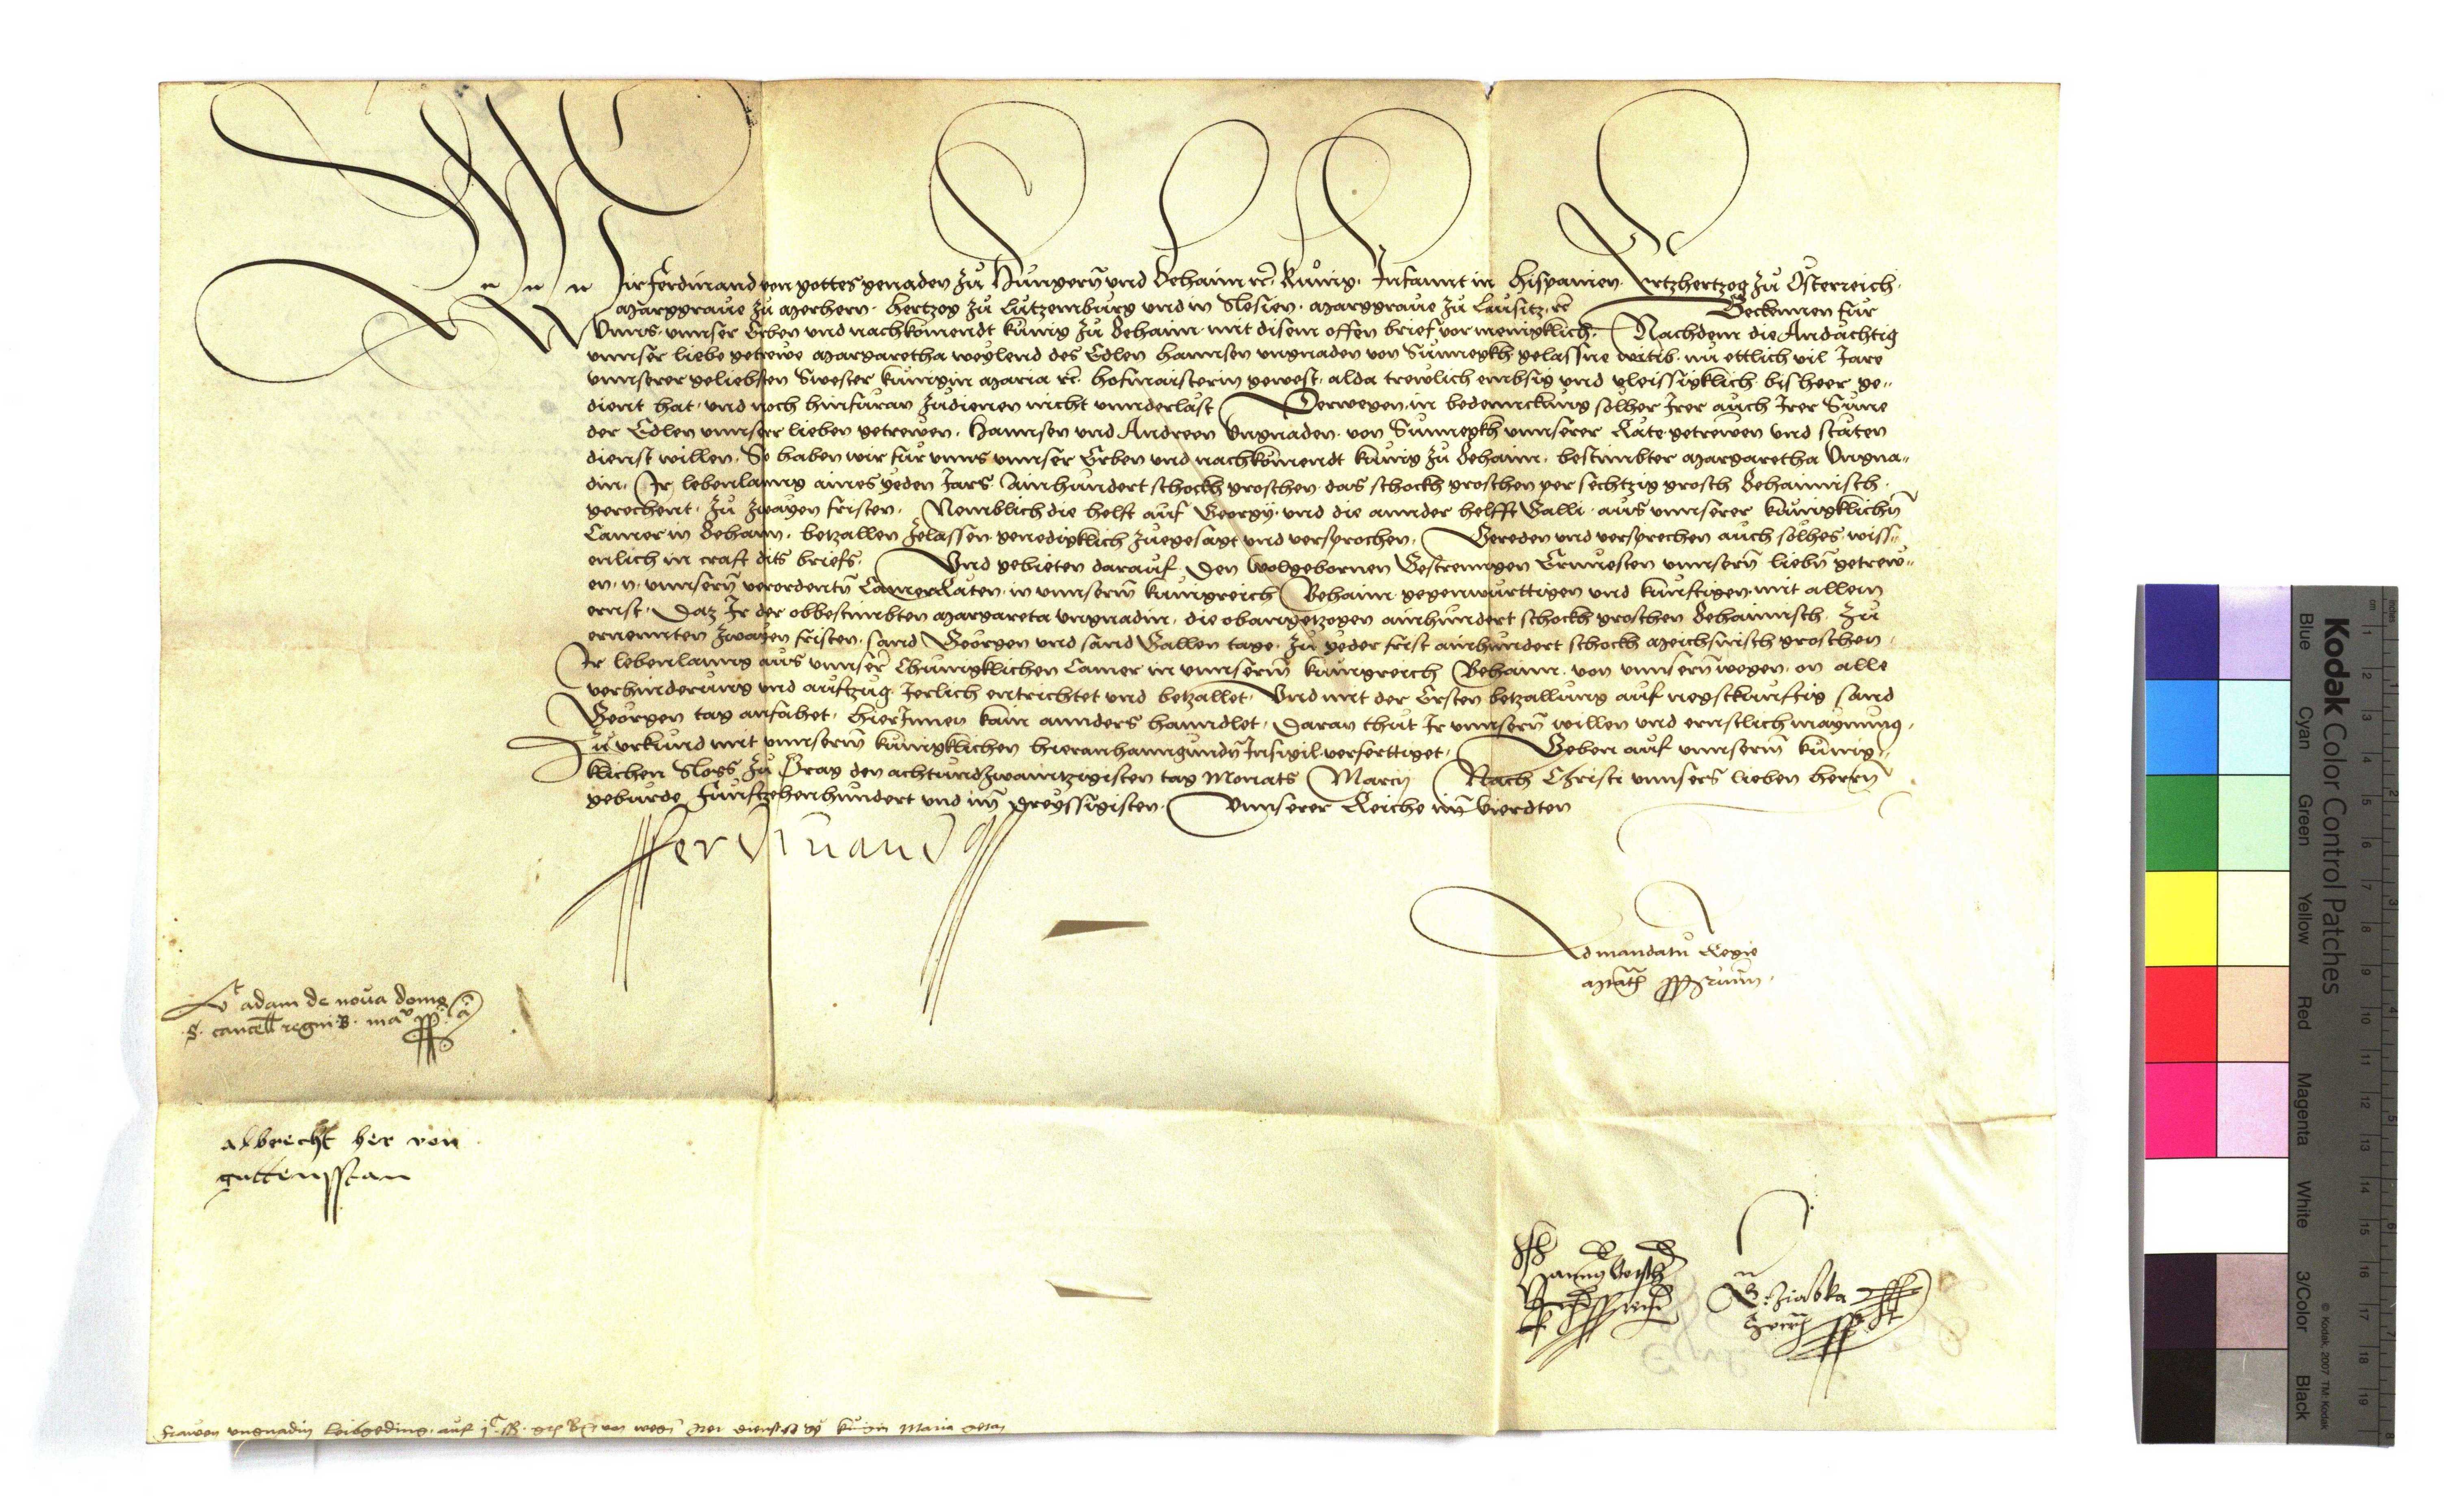 Wir Ferdinand von gottes genaden zů Hůngern̄ vnd Behaim ꝛc̄ Kůnig. Infannt in Hispanien. Ertzhertzog zů Österreich.
Marggraue zů Merhern. Hertzog zů Lützemburg vnd in Slesien. Marggraue zů Lausitz. ꝛc̄ Bekennen für
Vnns. vnnser Erben vnd nachkomendt kunig zů Behaim mit disem offen brief vor menigklich. Nachdem die Andächtig
vnnser liebe getrewe Margaretha weylend des Edlen Hannsen vngnaden von Sunnegkh gelassne witib. nu ettlich vil Jare
vnnserer geliebsten Swester kunigin Maria ꝛc̄. hofmaisterin gewest. alda trewlich embsig vnd vleissigklich bis heer ge„
dient hat. vnd noch hinfüran zůdienen nicht vnnderlast Derwegen in bedennckhung solher Irer auch Irer Sune
der Edlen vnnserer lieben getrewen. Hannsen vnd Andreen Vngnaden. von Sunnegkh vnnserer Räte getrewen vnd stäten
dienst willen. So haben wir für vnns vnnser Erben vnd nachkomendt kunig zů Behaim. bestimbter Margaretha Vngna„
din. Ir lebenlanng aines yeden Jars. Ainhundert schockh groschen. das schockh groschen per sechtzig grosch Behaimisch.
gerechent. zů zwayen fristen. Nemblich die helft auf Georgy. vnd die annder helfft Galli. aus vnnserer kunigklichn̄
Camer in Behaim. betzallen zelassen genedigklich zůegesagt vnd versprochen. Gereden vnd versprechen auch solhes. wiss„
enlich in craft dits briefs. Vnd gebieten darauf. den Wolgebornen Gestrenngen Ernuesten vnnsern̄ liebn̄ getrew„
en. n. vnnsern̄ verordentn̄ CamerRäten. in vnnserm̄ kunigreich Behaim. gegenwürttigen vnd künftigen. mit allem
ernst. Daz Ir der obbestimbten Margareta Vngnadin. die obangetzogen ainhundert schockh groschen Behaimisch. zů
ernennten zwayen fristen. sand Georgen vnd sand Gallen tage. zů yeder frist ainhundert schock Meichsnisch groschen.
Ir lebenlanng aus vnnser̄ Chunigklichen Camer in vnnserm̄ kunigreich Behaim. von vnnsern̄ wegen. on alle
verhinderung vnd aufzug. Jerlich entrichtet vnd betzallet. Vnd mit der Ersten betzallung auf negstkunftig sand
Georgen tag anfahet. HierInnen kain annders hanndlet. Daran thut Ir vnnsern̄ willen vnd ernstlich maynung.
Zu vrkund mit vnnserm̄ kunigklichen hieranhanngundn̄ Insigil. verferttiget. Geben auf vnnserm̄ kunig„
klichen Sloss zů Prag den achtundzwaintzigisten tag Monats Marcij Nach Christi vnnsers lieben herrn̄
geburde Funftzehenhundert vnd im̄ dreyssigisten. Vnnserer Reiche im̄ vierdten
Ferdinand
Ad mandatū Regie
Maͭtͭis ppriūm.
Vͭ adam de noua domo
S. cancell regni B. maͮ pp
albrecht her von
guttensstan
frawen vngnadin leibgeding. auf jᶜ ß. gr B von wegn̄ irer dienst so sy kunigin Maria getan